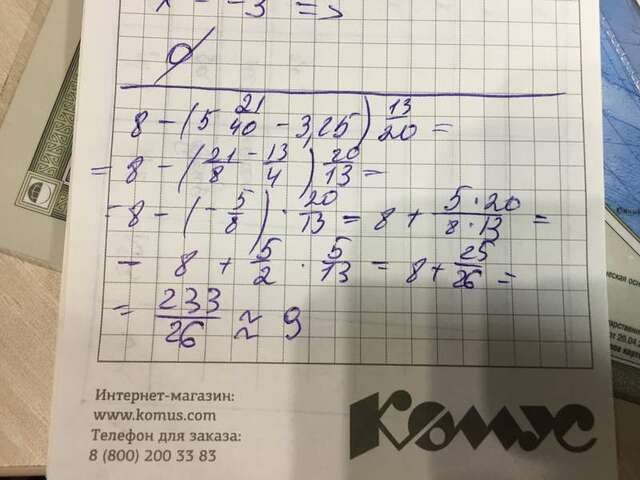 x = -3 =>
0
8 - (5 21/40 - 3,25) 13/20 =
= 8 - (21/8 - 13/4) 20/13 =
- 8 - (- 5/8) · 20/13 = 8 + 5·20/8·13 =
- 8 + 5/2 · 5/13 = 8 + 25/26 =
= 233/26 ≈ 9
Интернет-магазин:
www.komus.com
Телефон для заказа:
8 (800) 200 33 83
Комус